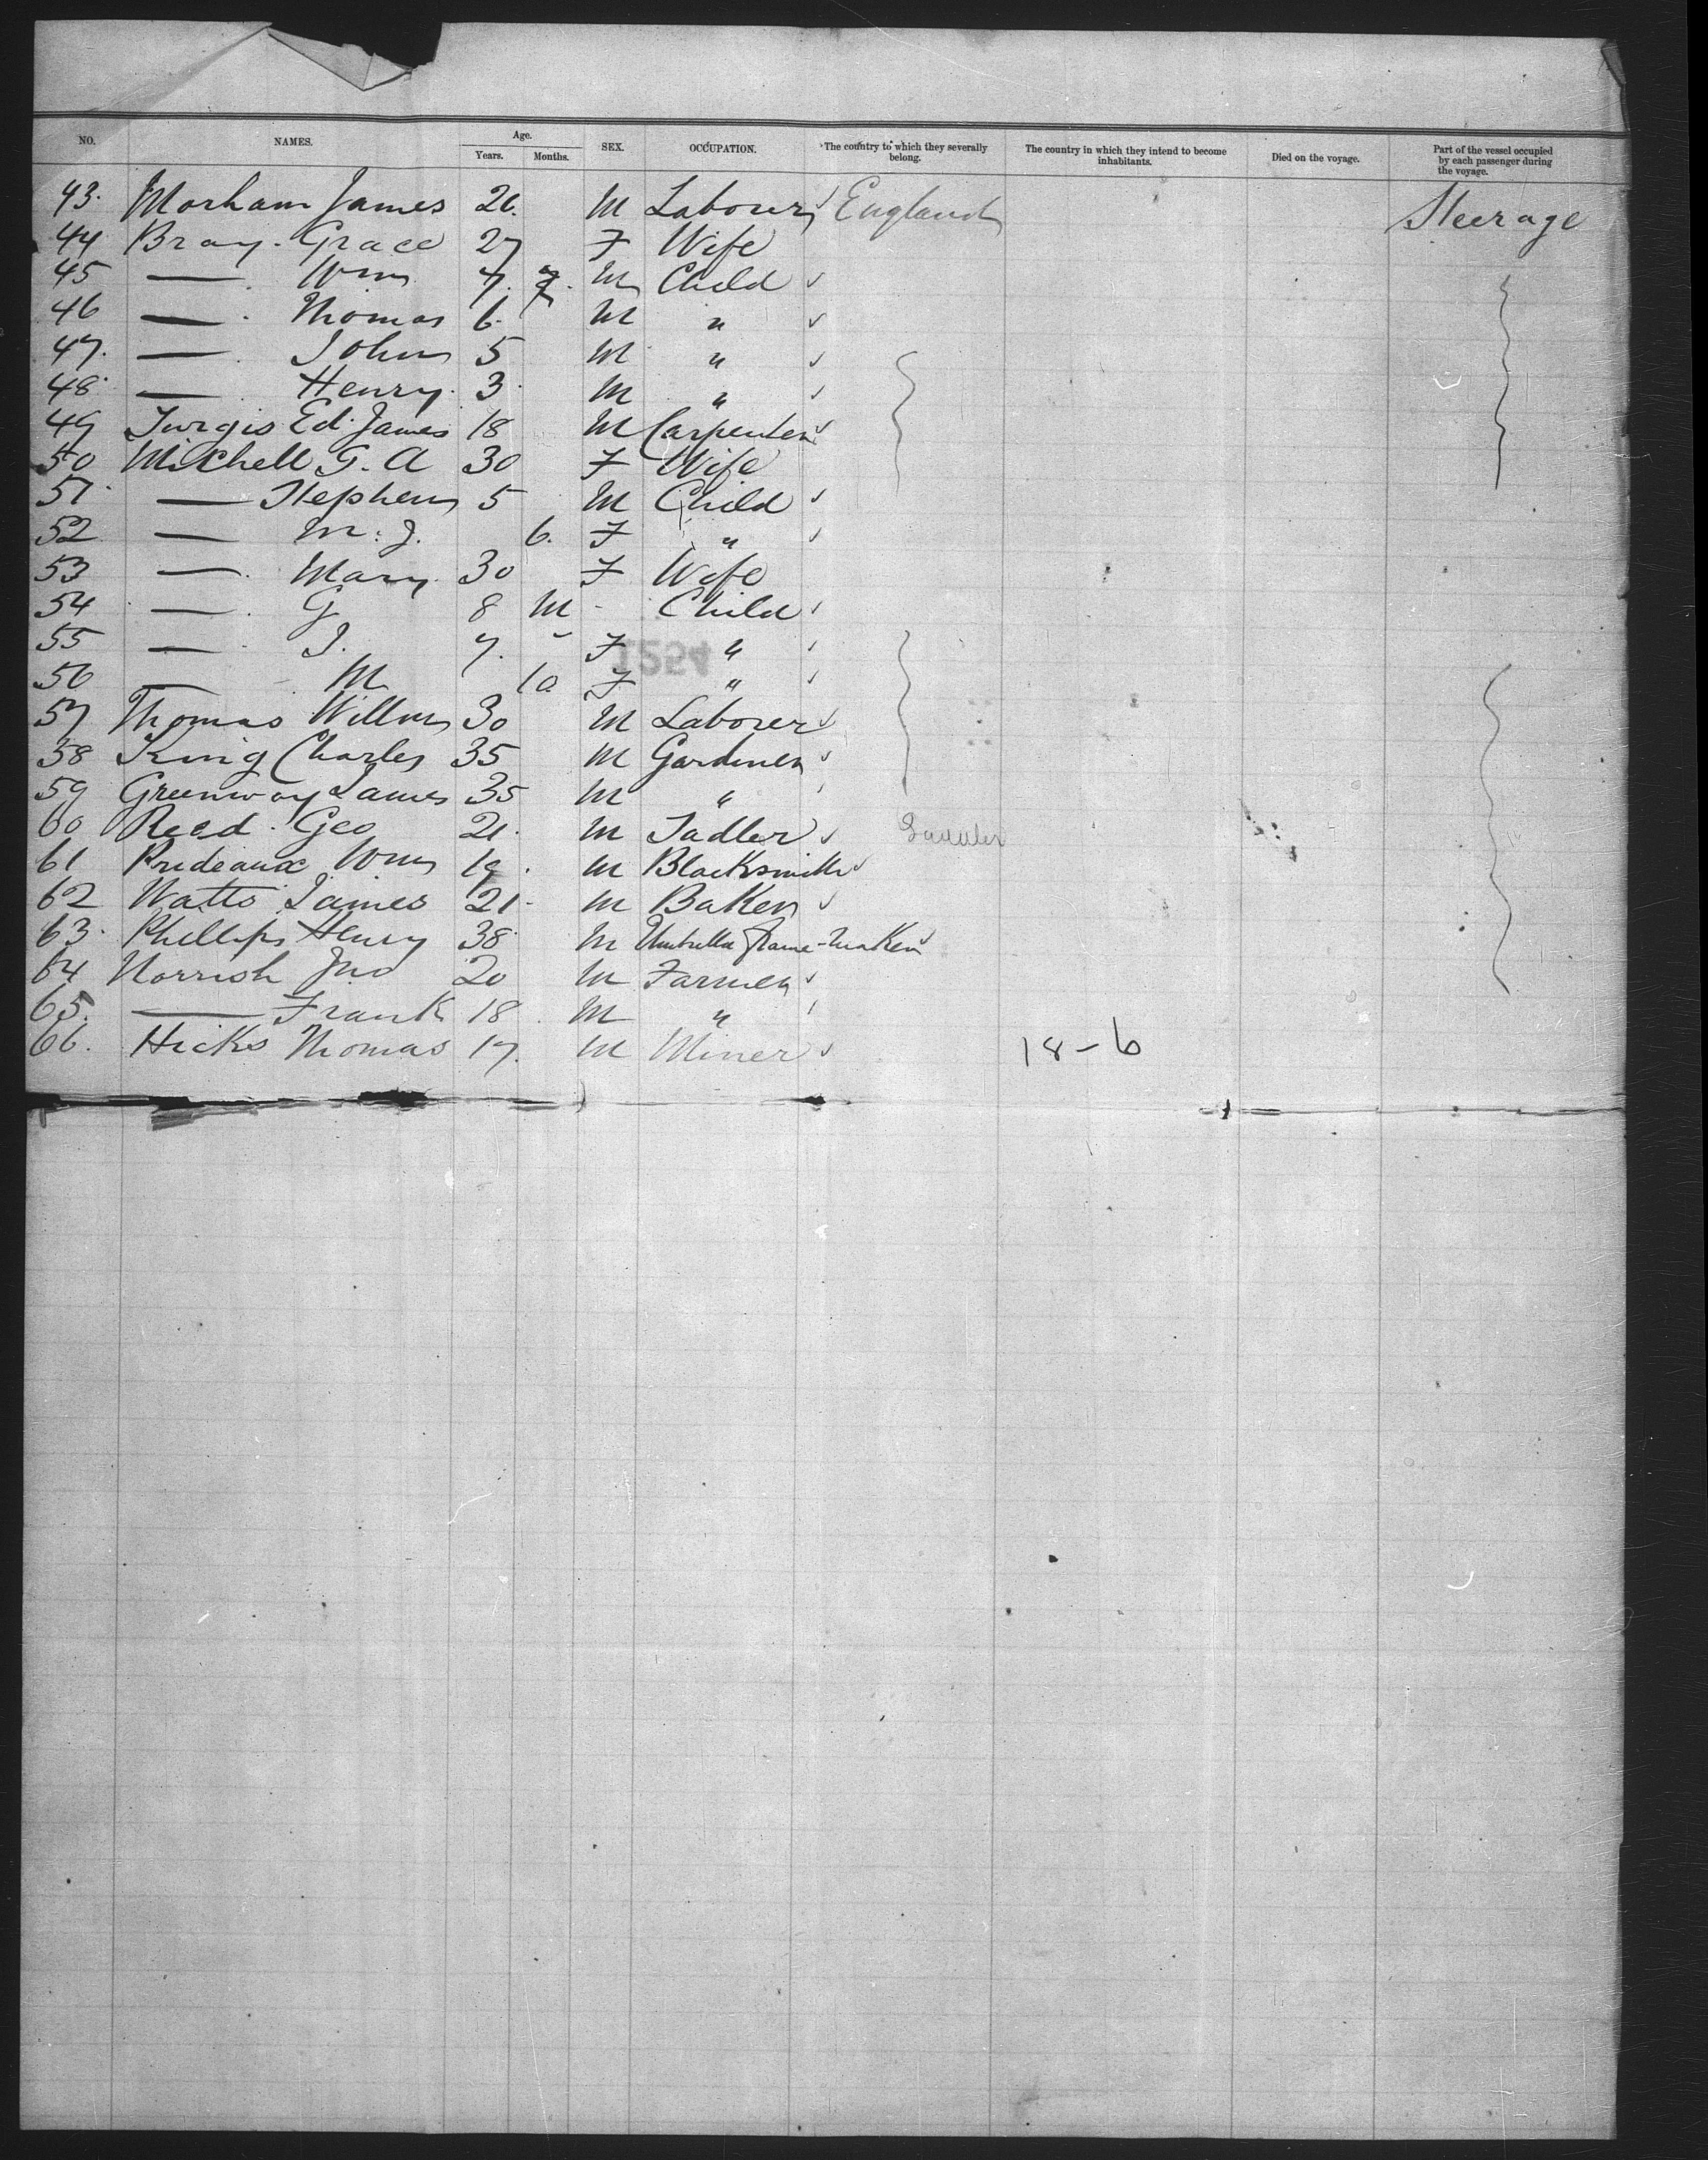 NO. NAMES. Age. Years. Months. SEX. OCCUPATION. The country to which they severally belong. The country in which they intend to become inhabitants. Died on the voyage. Part of the vessel occupied by each passenger during the voyage.
43. Morham James 26. M Laborer England Steerage
44 Bray. Grace 27 F Wife
45 — Wm 7. M Child
46 — Thomas 6. M "
47. — John 5 M "
48. — Henry. 3. M "
49 Turgis Ed. James 18 M Carpenter
50 Mitchell G. A 30 F Wife
51. — Stephen 5 M Child
52 — M. J. 6. F "
53 — Mary. 30 F Wife
54 — G 8 M - Child
55 — J. 7. " F "
56 — M 10. F "
1254
57 Thomas Willm 30 M Laborer
58 King Charles 35 M Gardiner
59 Greenway James 35 M "
60 Reed. Geo 21. M Sadler Saddler
61 Prideaux Wm 19. M Blacksmith
62 Watts James 21- M Baker
63. Phillips Henry 38 M Umbrella frame-maker
64 Norrish Jno 20 M Farmer
65. — Frank 18. M "
66. Hicks Thomas 17. M Miner 18-6